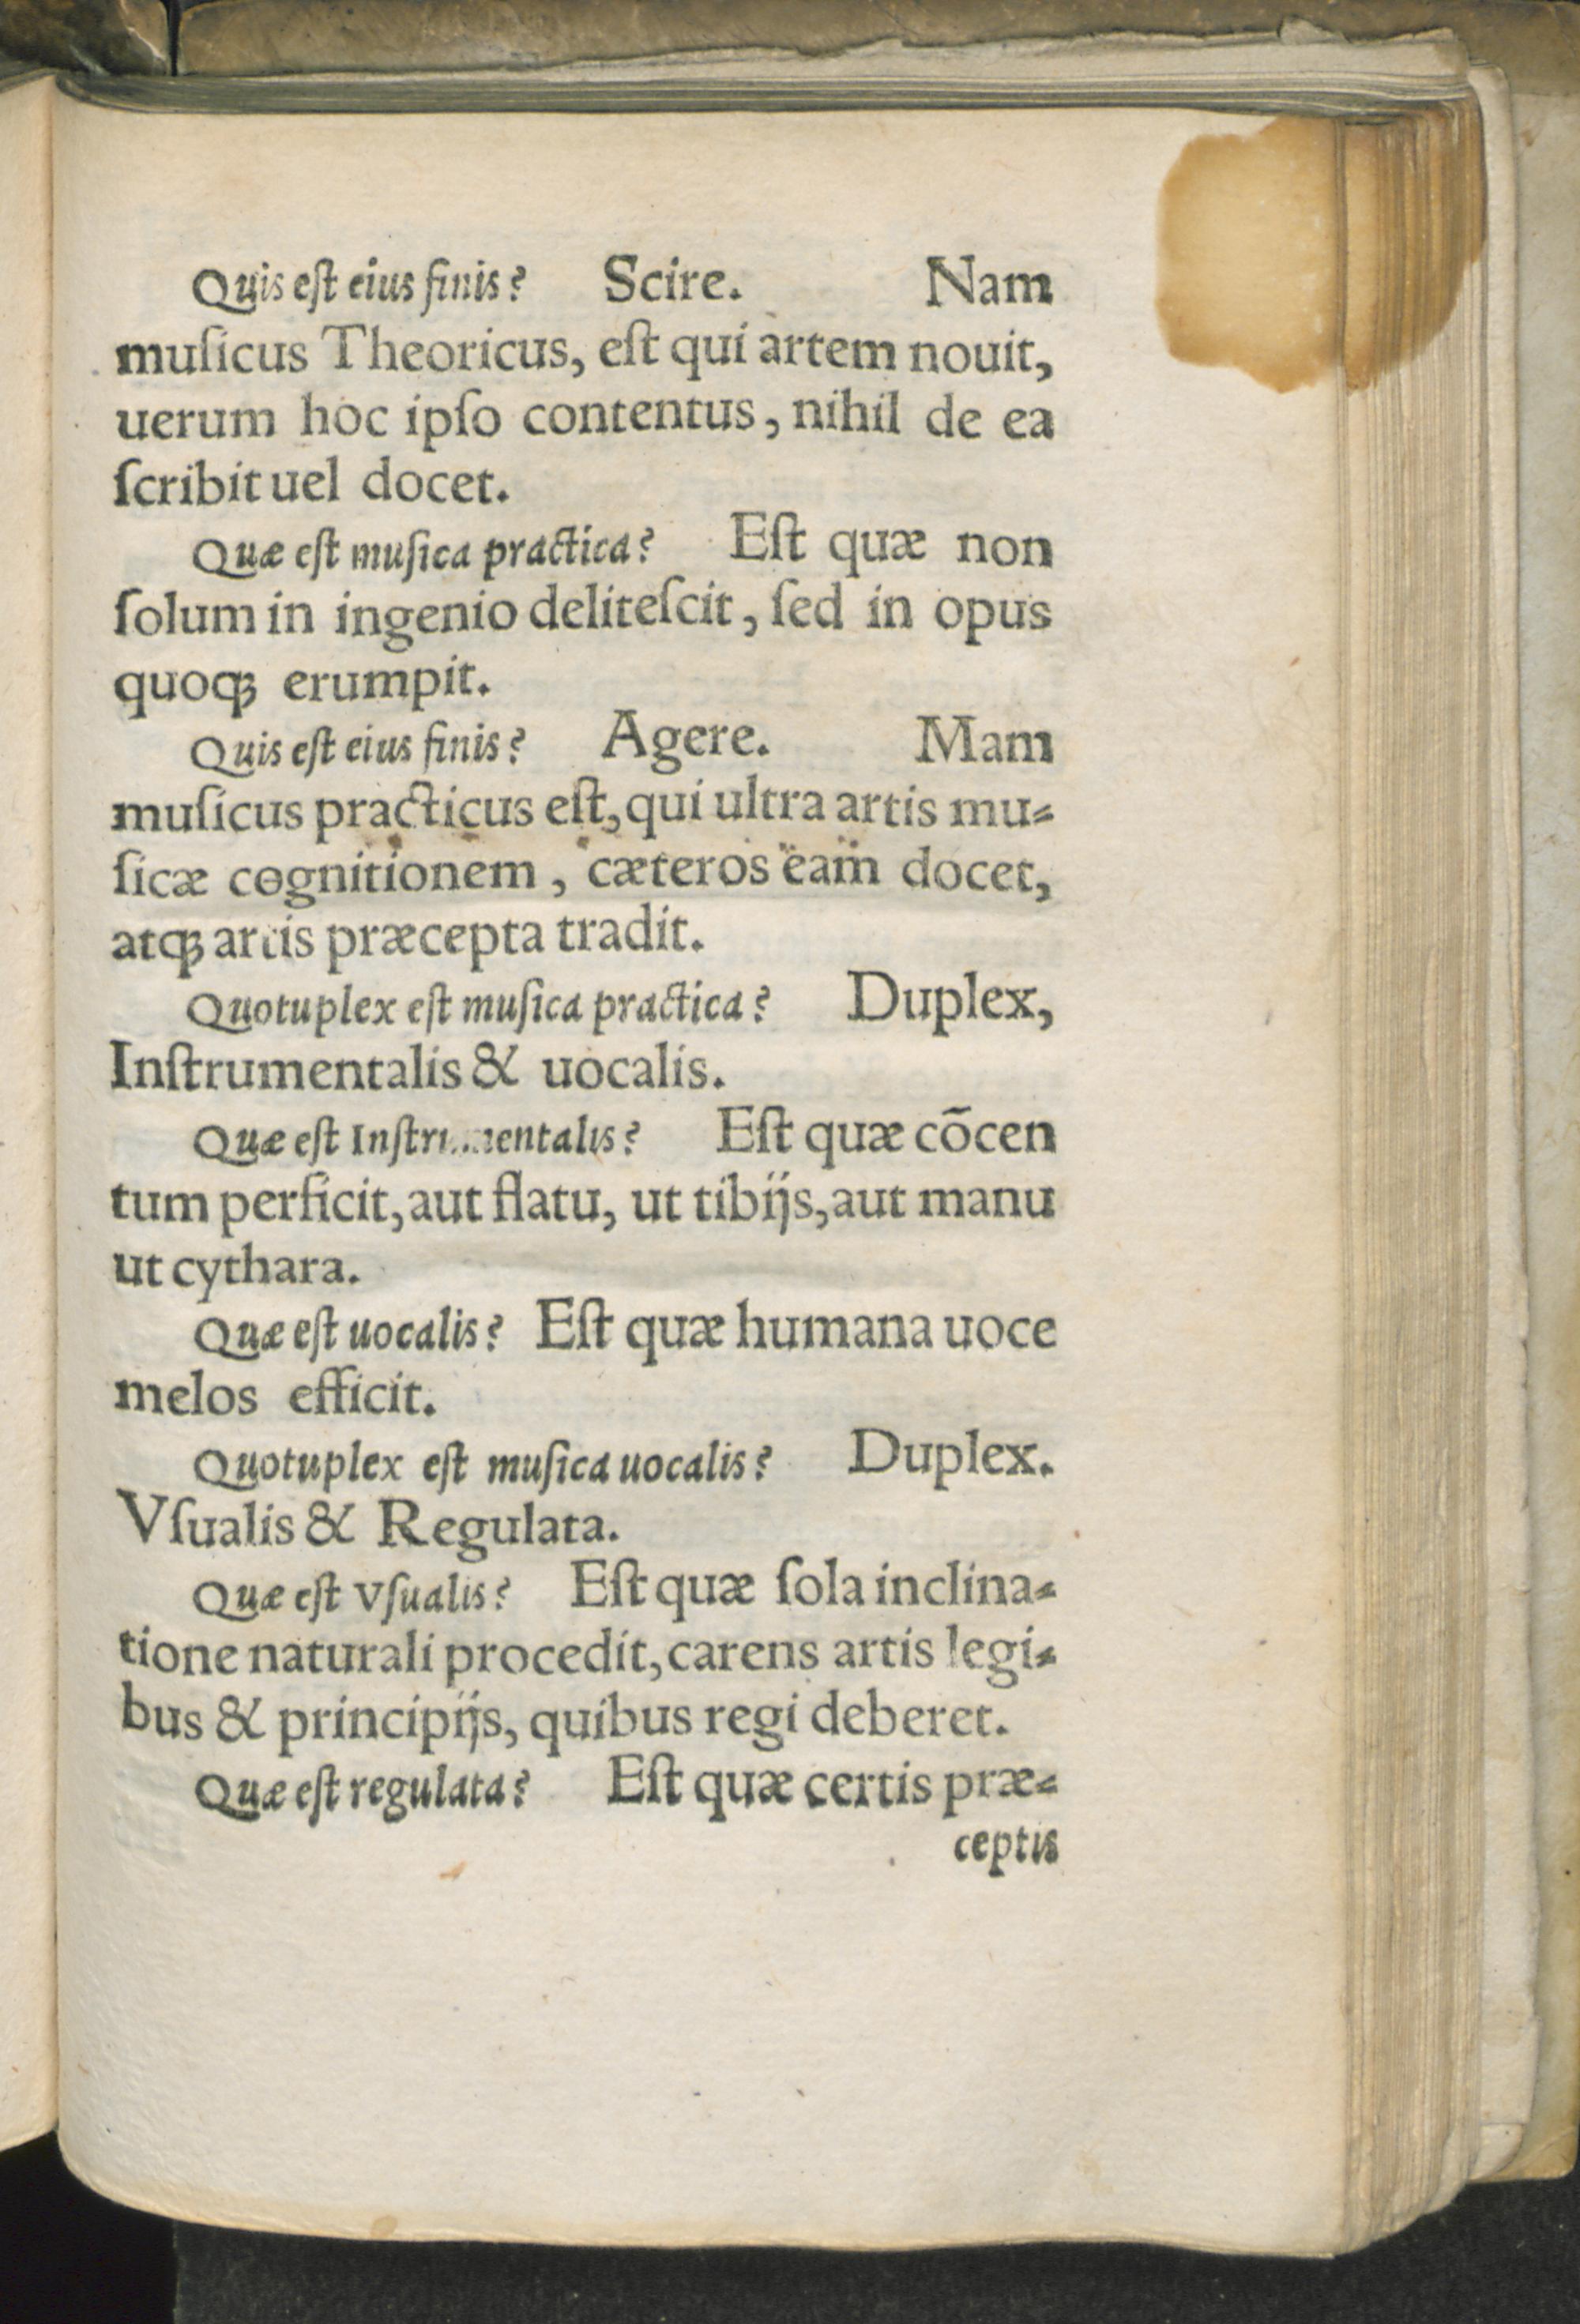 Quis eſt eius finis? Scire. Nam
muſicus Theoricus, eſt qui artem nouit,
uerum hoc ipſo contentus, nihil de ea
ſcribit uel docet.
Quæ eſt muſica practica? Eſt quæ non
ſolum in ingenio deliteſcit, ſed in opus
quoqꝫ erumpit.
Quis eſt eius finis? Agere. Mam
muſicus practicus eſt, qui ultra artis mu⸗
ſicæ cognitionem, cæteros eam docet,
atqꝫ artis præcepta tradit.
Quotuplex eſt muſica practica? Duplex,
Inſtrumentalis & uocalis.
Quæ eſt Inſtrumentalis? Eſt quæ cõcen
tum perficit, aut flatu, ut tibijs, aut manu
ut cythara.
Quæ eſt uocalis? Eſt quæ humana uoce
melos efficit.
Quotuplex eſt muſica uocalis? Duplex.
Vſualis & Regulata.
Quæ eſt Vſualis? Eſt quæ ſola inclina⸗
tione naturali procedit, carens artis legi⸗
bus & principijs, quibus regi deberet.
Quæ eſt regulata? Eſt quæ certis præ⸗
ceptis